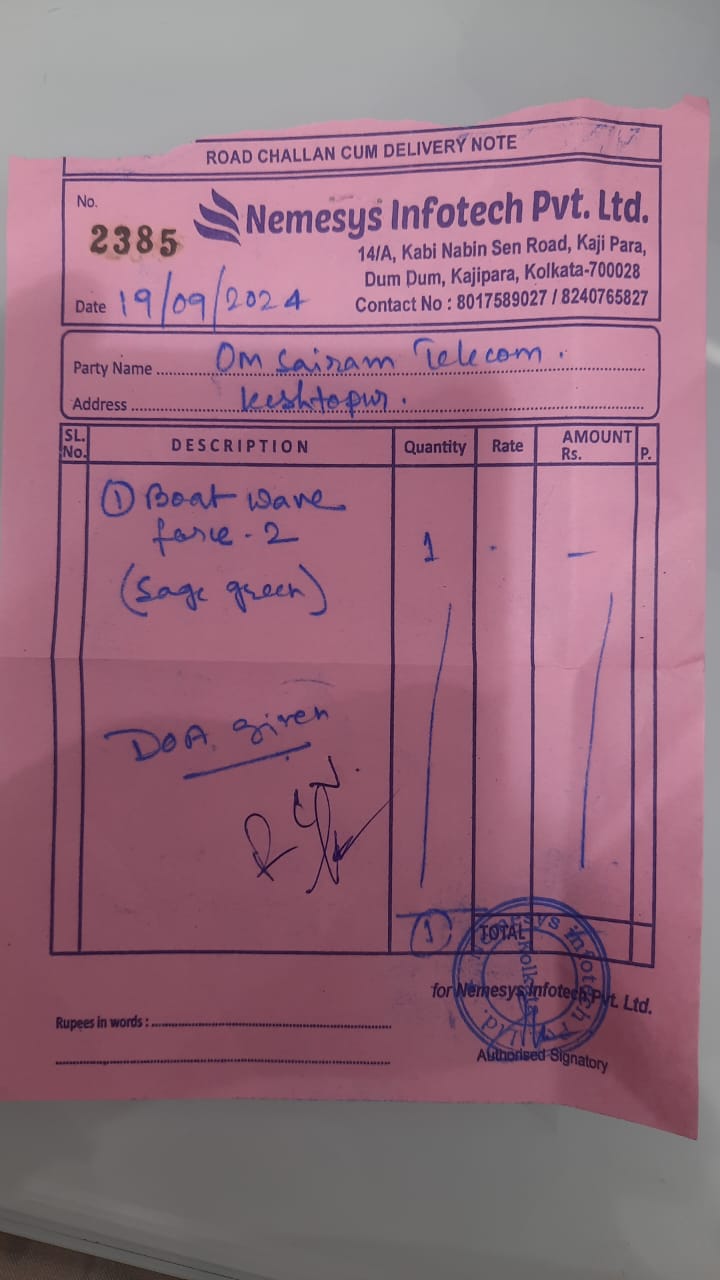 ROAD CHALLAN CUM DELIVERY NOTE
No.
2385
Nemesys Infotech Pvt. Ltd.
14/A, Kabi Nabin Sen Road, Kaji Para,
Dum Dum, Kajipara, Kolkata-700028
Contact No : 8017589027 / 8240765827
Date 19/09/2024
Party Name Om Sairam Telecom.
Address Keshtopur.
SL. No. DESCRIPTION Quantity Rate AMOUNT Rs. P.
① Boat wave
force - 2 1 . –
(Sage green)
DOA. given
① TOTAL
for Nemesys Infotech Pvt. Ltd.
Nemesys Infotech Pvt. Ltd.
Kolkata
Rupees in words :
Authorised Signatory